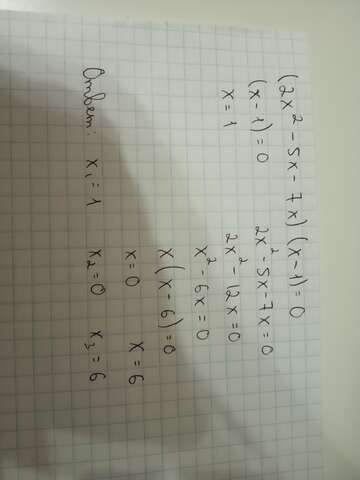 (2x² - 5x - 7x) (x - 1) = 0
(x - 1) = 0 2x² - 5x - 7x = 0
x = 1 2x² - 12x = 0
x² - 6x = 0
x (x - 6) = 0
x = 0 x = 6
Ответ: x₁ = 1 x₂ = 0 x₃ = 6